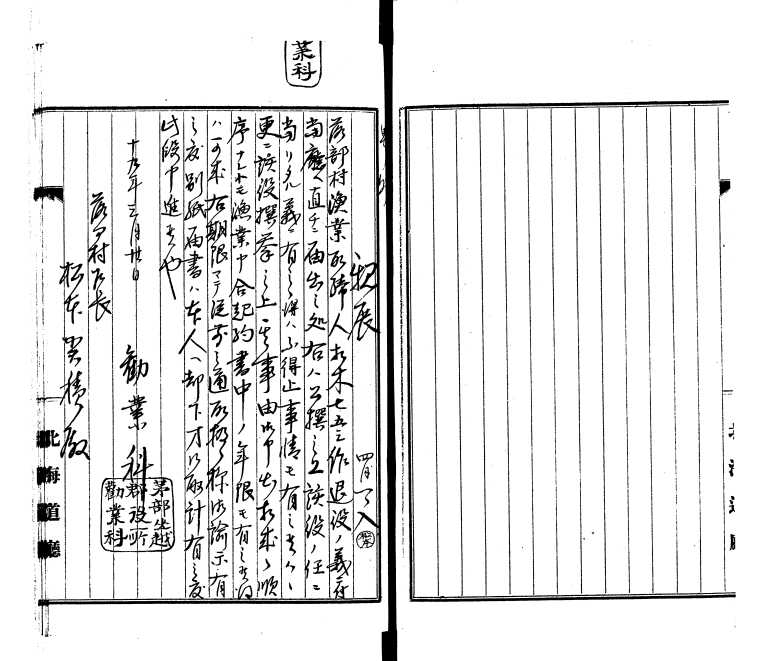 業科
親展
四月一日入
落部村漁業取締人相木七五三作退役ノ義ニ付
当廰ヘ直チニ届出之処右ハ公撰之上該役ノ任ニ
当リタル義ニ有之候得ハ不得止事情モ有之候ハヽ
更ニ該役撰挙之上其事由御申出相成候順
序ナレトモ漁業中合起約書中ノ年限モ有之候
ハ一ヶ年右期限マテ従前之通取扱候様御諭示有
之度別紙届書ハ本人ヘ却下方御取計有之度
此段申進候也
十九年三月廿日
勧業科
茅部山越
郡役所
勧業科
落部村戸長
松本
殿
北海道廳
北海道廳